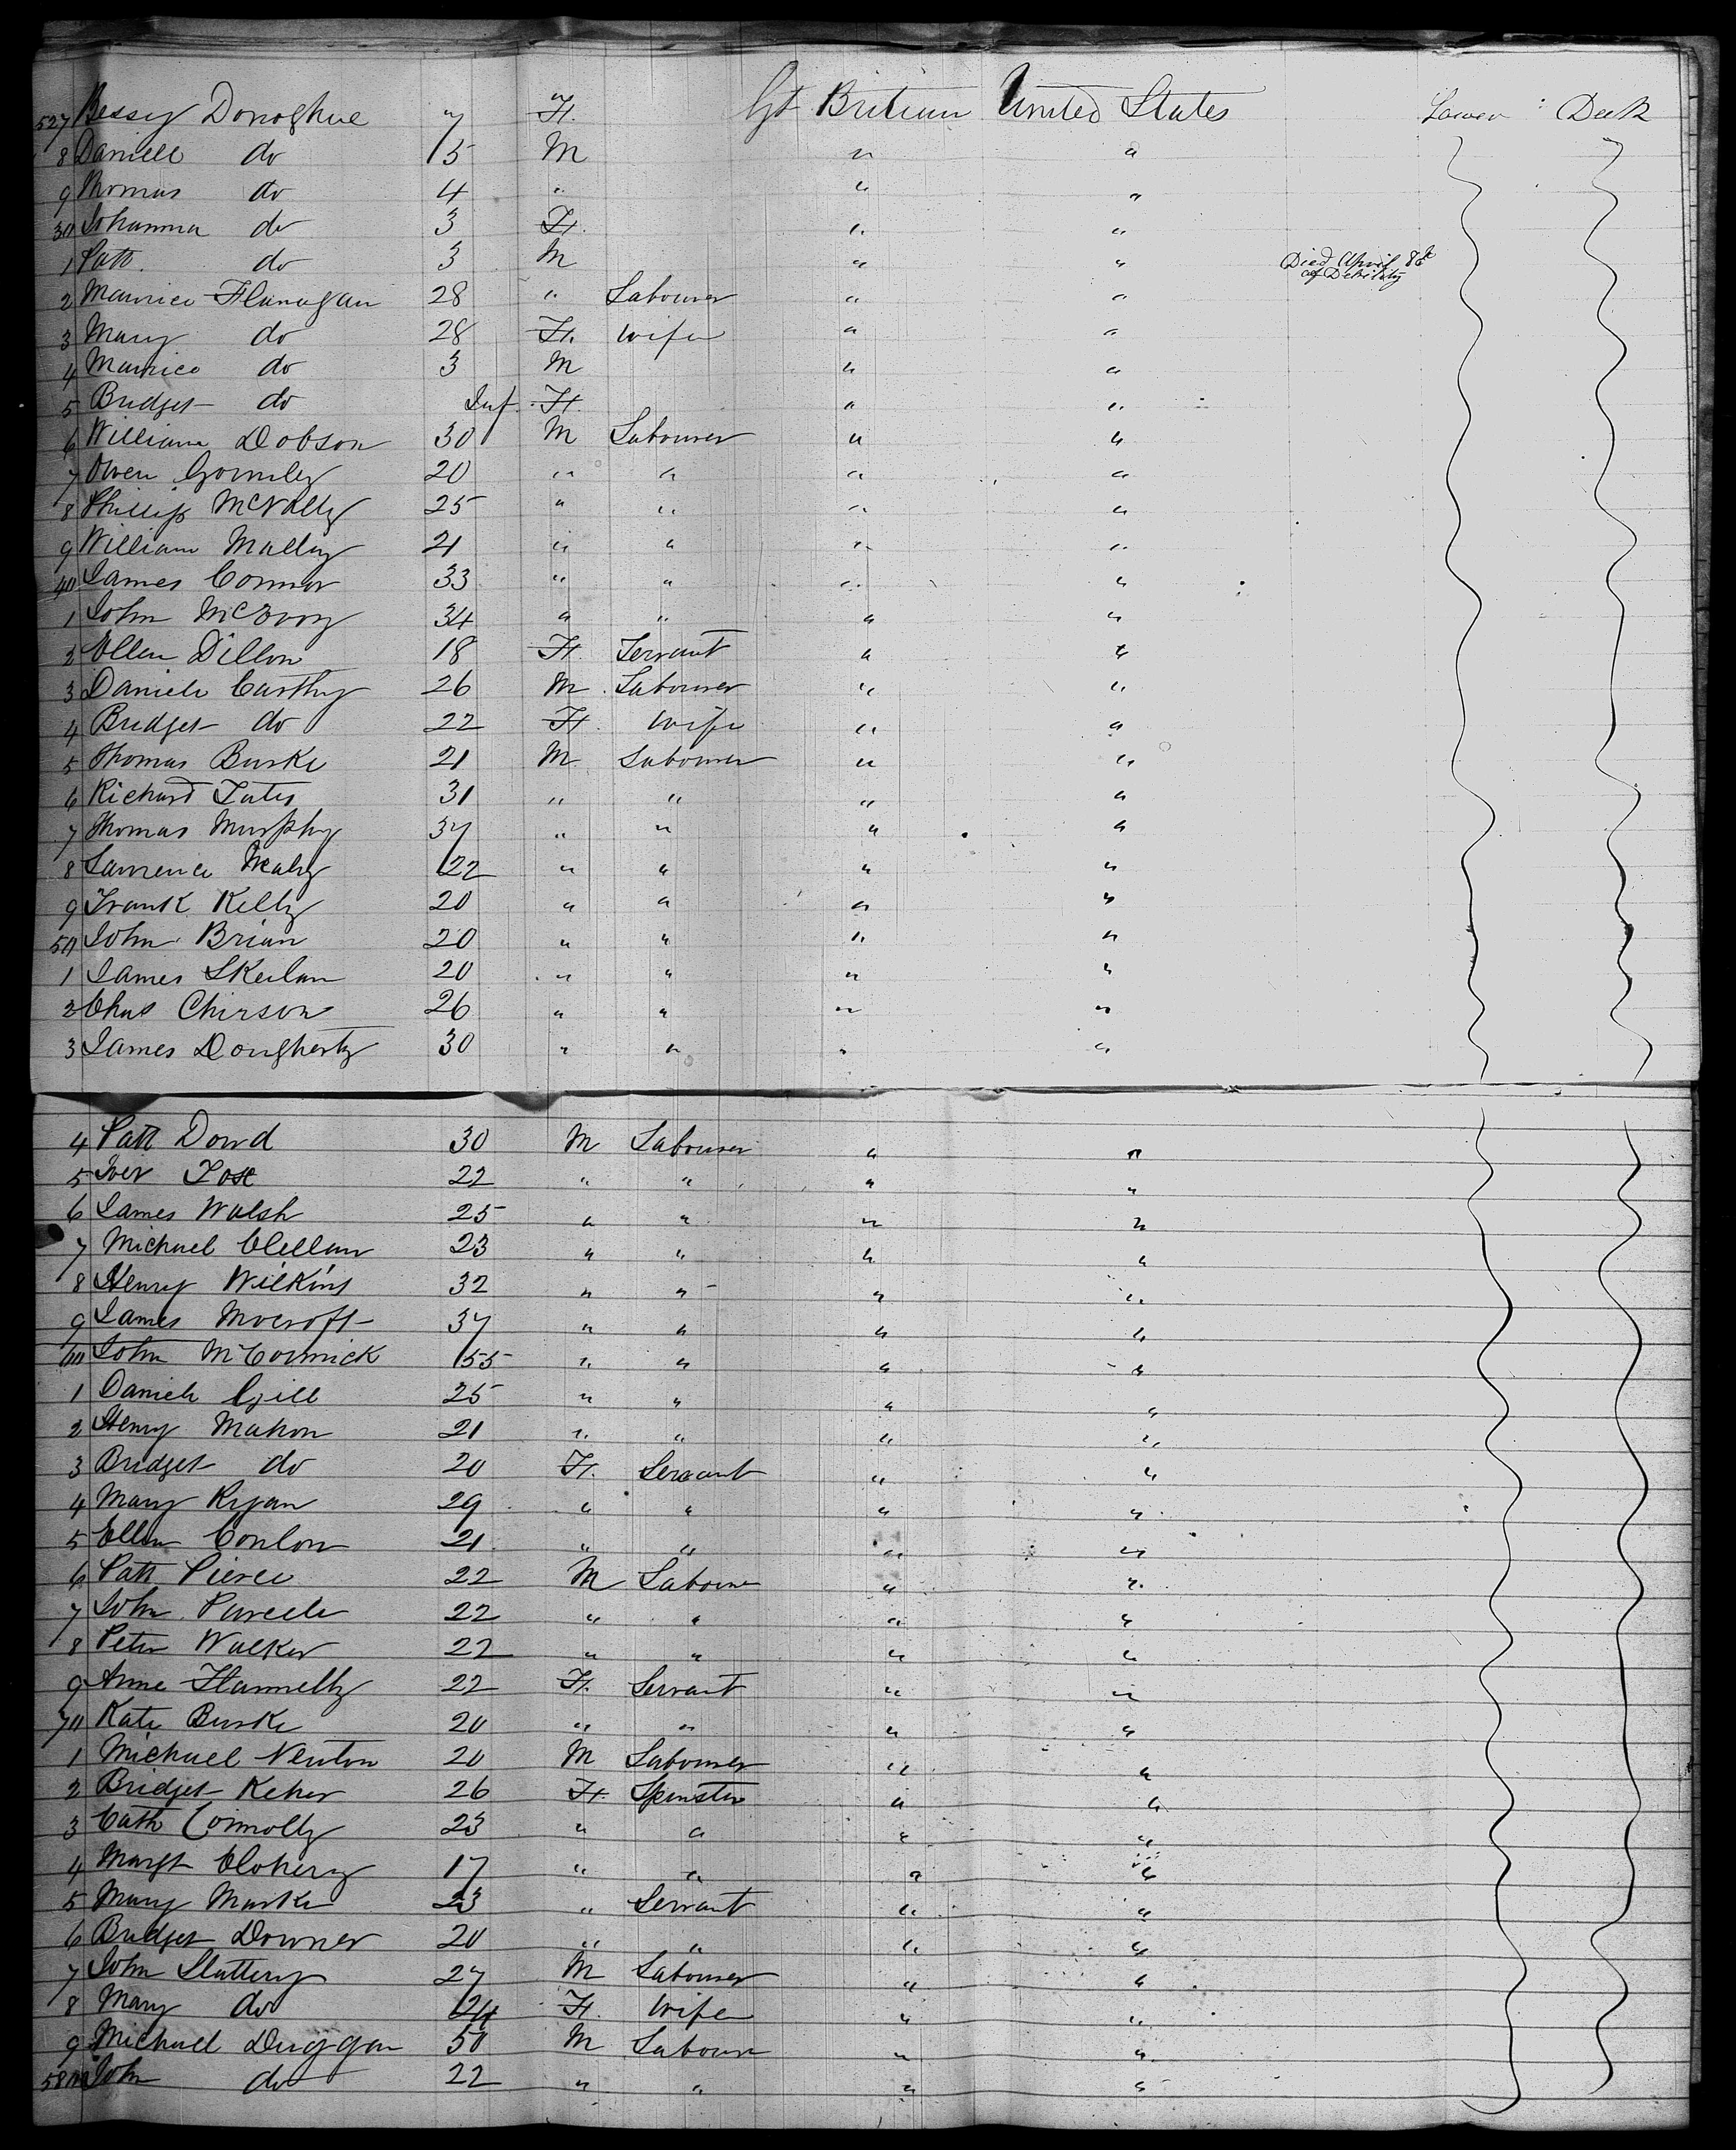 527 Bessy Donoghue 7 F. Gt Britian United States Lower Deck
8 Daniell do 15 M " "
9 Thomas do 4 " " "
30 Johanna do 3 F. " "
1 Patt. do 3 M " " Died April 8th of Debility
2 Maurice Flanagan 28 " Labourer " "
3 Mary do 28 F. Wife " "
4 Maurice do 3 M " "
5 Bridget do Inf. F. " "
6 William Dobson 30 M Labourer " "
7 Owen Gormley 20 " " " "
8 Phillip McNally 25 " " " "
9 William Malley 21 " " " "
40 James Connor 33 " " " "
1 John McEvoy 34 " " " "
2 Ellen Dillon 18 F. Servant " "
3 Daniele Carthy 26 M. Labourer " "
4 Bridget do 22 F. Wife " "
5 Thomas Burke 21 M Labourer " "
6 Richard 31 " " " "
7 Thomas Murphy 37 " " " "
8 Lawrence Mealy 22 " " " "
9 Frank Kelly 20 " " " "
50 John Brian 20 " " " "
1 James Skeilan 20 " " " "
2 Chas Chirson 26 " " " "
3 James Dougherty 30 " " " "
4 Patt Dowd 30 M Labourer " "
5 22 " " " "
6 James Walsh 25 " " " "
7 Michael Clellan 23 " " " "
8 Henry Wilkins 32 " " " "
9 James Mocroft 37 " " " "
60 John McCormick 55 " " " "
1 Daniele Gill 25 " " " "
2 Henry Mahon 21 " " " "
3 Bridget do 20 F. Servant " "
4 Mary Ryan 29 " " " "
5 Ellen Conlon 21 " " " "
6 Patt Pierce 22 M Labourer " "
7 John Purcele 22 " " " "
8 Peter Walker 22 " " " "
9 Anne Flannelly 22 F. Servant " "
70 Kate Burke 20 " " " "
1 Michael Newton 20 M Labourer " "
2 Bridget Keher 26 F. Spinster " "
3 Cath Connolly 23 " " " "
4 Margt Clohery 17 " " " "
5 Mary Marke 23 " Servant " "
6 Bridget Downer 20 " " " "
7 John Slattery 27 M Labourer " "
8 Mary do 24 F. Wife " "
9 Michael Duggan 50 M Labourer " "
580 John do 22 " " " "